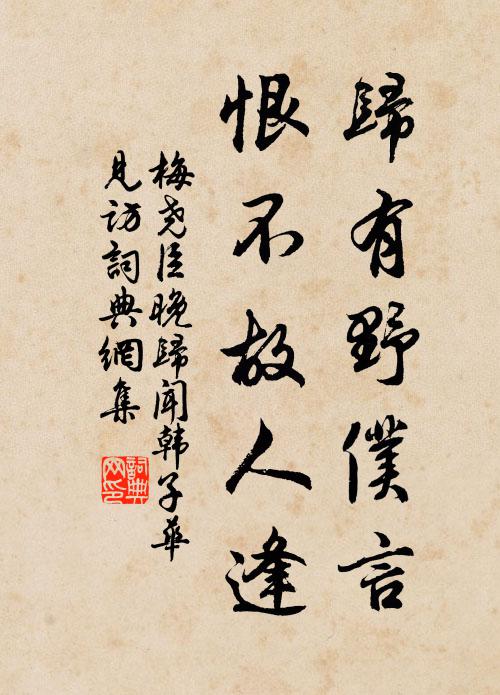 歸有野僕言
恨不故人逢
梅尧臣晚歸聞韩子華
見訪詞典網集
詞典
网印